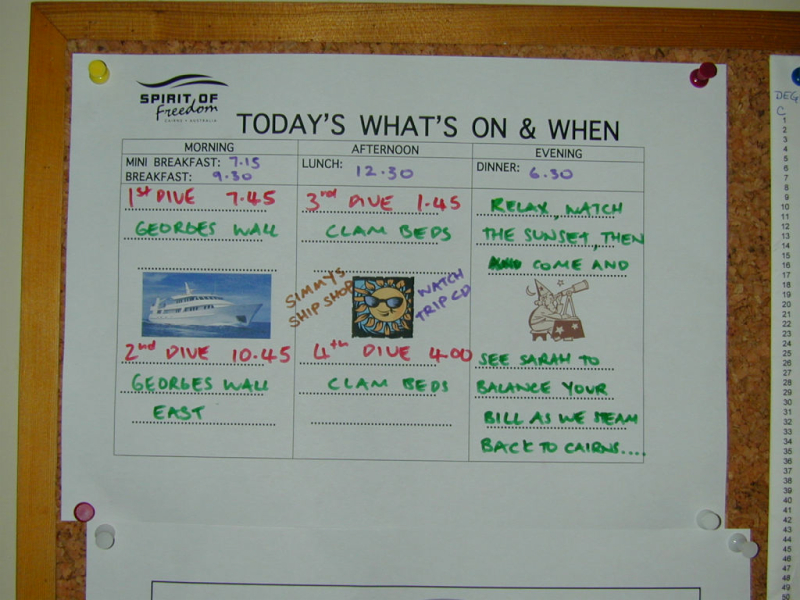 SPIRIT OF
Freedom
CAIRNS • AUSTRALIA
TODAY'S WHAT'S ON & WHEN
MORNING
MINI BREAKFAST: 7.15
BREAKFAST: 9.30
1st DIVE 7.45
GEORGES WALL
2nd DIVE 10.45
GEORGES WALL
EAST
AFTERNOON
LUNCH: 12.30
3rd DIVE 1.45
CLAM BEDS
SIMMYS
SHIP SHOP
WATCH
TRIP CD
4th DIVE 4.00
CLAM BEDS
EVENING
DINNER: 6.30
RELAX, WATCH
THE SUNSET, THEN
COME AND
SEE SARAH TO
BALANCE YOUR
BILL AS WE STEAM
BACK TO CAIRNS....
DEG
C
1
2
3
4
5
6
7
8
9
10
11
12
13
14
15
16
17
18
19
20
21
22
23
24
25
26
27
28
29
30
31
32
33
34
35
36
37
38
39
40
41
42
43
44
45
46
47
48
49
50